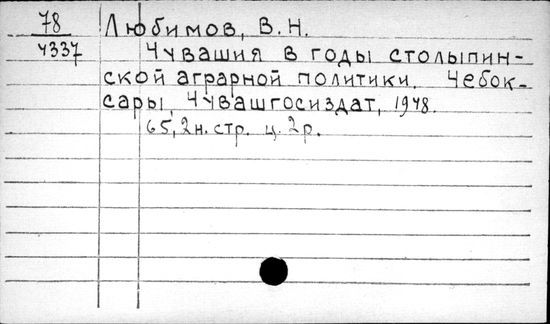 78 Любимов, В. Н.
4337 Чувашия в годы столыпин-
ской аграрной политики. Чебок-
сары, Чувашгосиздат, 1948.
65, 2н. стр. ц. 2р.